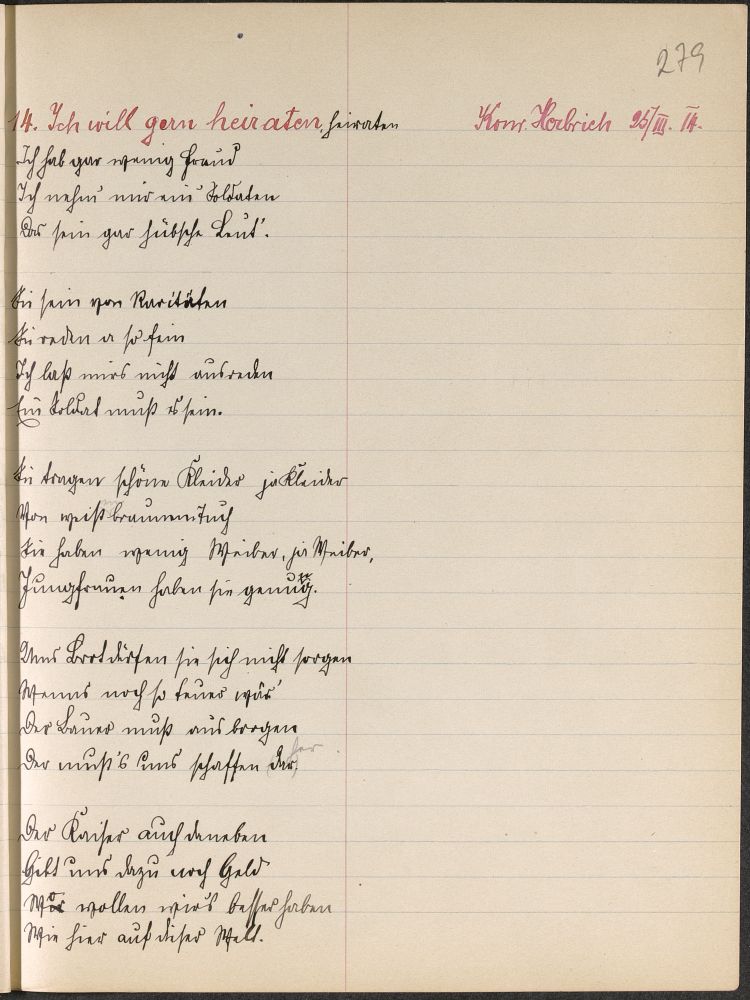 279
14. Ich will gern heiraten, heiraten
Konr. Habrich 25/III. 14.
Ich hab gar wenig Freud
Ich nehm mir ein' Soldaten
Das sein gar hübsche Leut'.
Sie sein von Raritäten
Sie reden a so fein
Ich laß mirs nicht ausreden
Ein Soldat muß es sein.
Sie tragen schöne Kleider ja Kleider
Von weißbraunem Tuch
Sie haben wenig Weiber, ja Weiber,
Jungfrauen haben sie genug.
Ums Brot dürfen sie sich nicht sorgen
Wenns noch so teuer wär'
Der Bauer muß aus borgen
Der muß's uns schaffen dar
her
Der Kaiser auch daneben
Gibt uns dazu noch Geld
Wo wollen wirs besser haben
Wie hier auf dieser Welt.